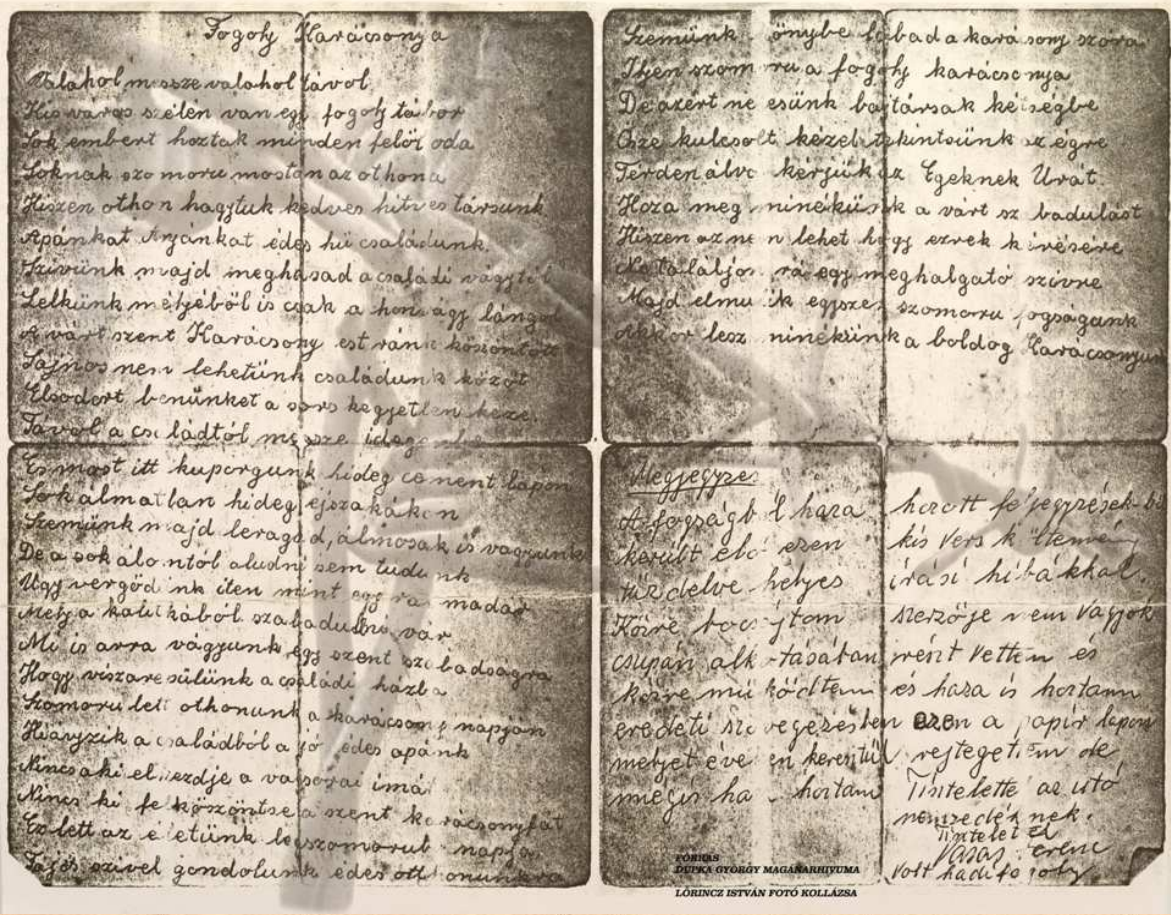 Fogoly Karácsonya
Valahol messze valahol távol
Kis város szélén van egy fogoly tábor
Sok embert hoztak minden felöl oda
Soknak szomoru mostan az othona
Hiszen othon hagytuk kedves hitves társunk
Apánkat Anyánkat édes hü családunk.
Szivünk majd meghasad a családi vágytól
Lelkünk mélyéböl is csak a honvágy lángol
A várt szent Karácsony est ránk köszöntött
Sajnos nem lehetünk családunkközöt
Elsodort benünket a sors kegyetlen keze.
Távol a családtól messze idegenbe
Es most itt kuporgunk hideg cement lapon
Sok álmatlan hideg éjszakákon
Szemünk majd leragad, álmosak is vagyunk
De a sok álomtól aludni sem tudunk
Ugy vergödünk iten mint egy rab madár
Mely a kalitkából szabadulni vár
Mi is arra vágyunk egy szent szabadságra
Hogy viszare sülünk a családi házba
Szomoru lett othonunk a karácsony napján
Hiányzik a családból a jó édes apánk
Nincs aki elkezdje a vacsorai imát
Nincs ki fel köszöntse a szent karácsonyfát
Ez lett az életünk legszomorub napja
Fájós szivel gondolunk édes otthonunkra
Szemünk könybe lábad a karácsony szóra
Ilyen szomoru a fogoly karácsonya
De azért ne esünk bajtársak kétségbe
Ösze kulcsolt kézel tekintsünk az égre
Térden álva kérjük az Egeknek Urát.
Hoza meg minékünk a várt szabadulást
Hiszen az nem lehet hogy ezrek kérésére
Ne találjon rá egy meghalgató szivre
Majd elmulik egyszer szomoru fogságunk
Akkor lesz minékünk a boldog karácsonyunk
Megjegyzés
A fogságból haza hozott feljegyzések
került elö ezen kis vers költemény
tüzdelve helyes irási hibákkal.
Közre bocsájtom szerzöje nem vagyok
csupán alkotásában részt vettem és
közre müködtem és haza is hoztam
eredeti szövegezésben ezen a papir lapon
melyet éveken keresztül rejtegettem de
mégis haza hoztam Tisztelette az utó
nemzedéknek.
Tisztelettel
Varas Ferenc
volt hadifogoly
FORRÁS
DUPKA GYÖRGY MAGÁNARHIVUMA
LŐRINCZ ISTVÁN FOTÓ KOLLÁZSA